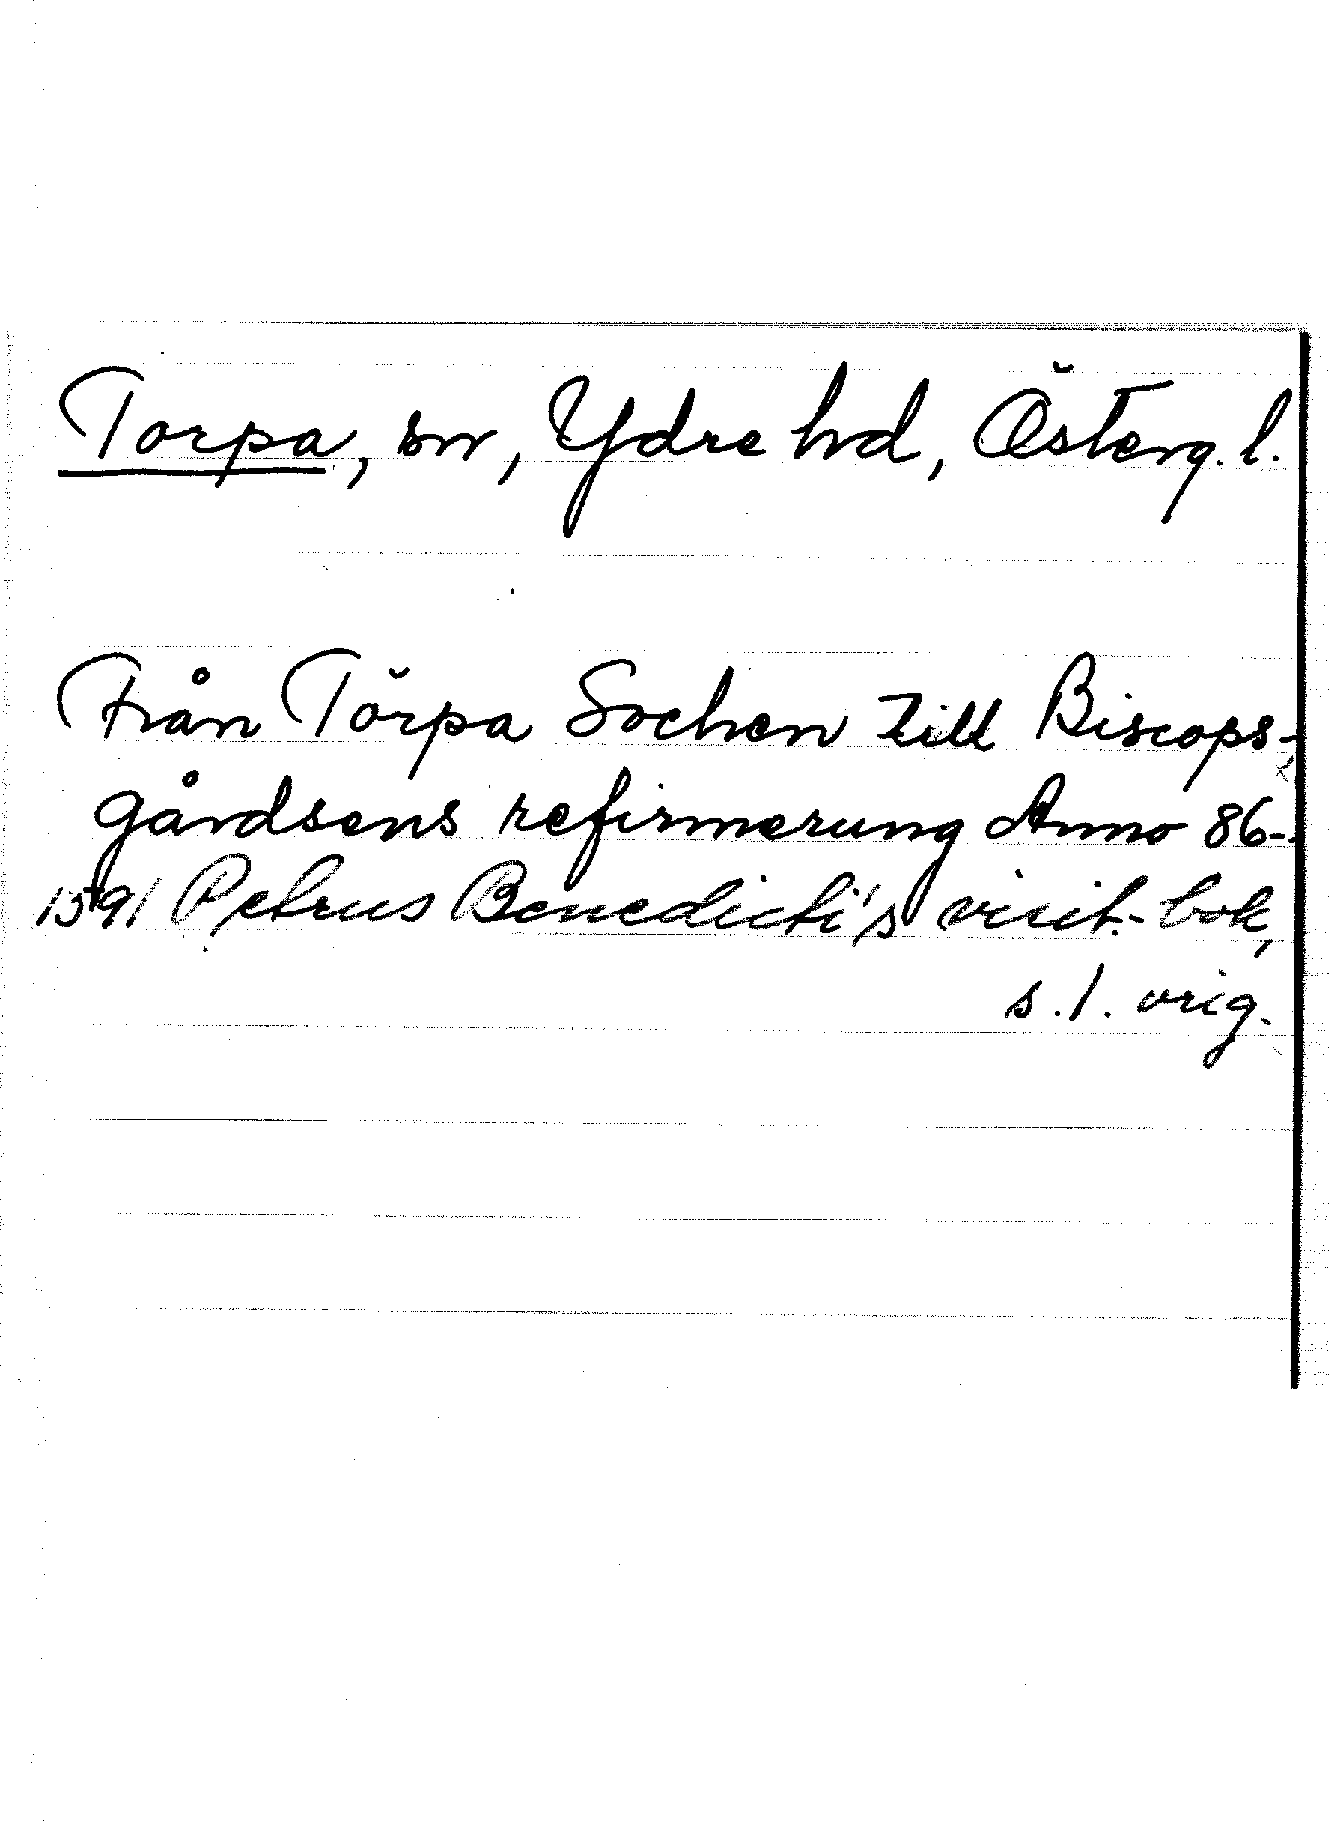 Torpa, sn, Ydre hd, Österg. l.
Från Törpa Sochen till Biscops-
gårdsens refirmerung Anno 86-
1591 Petrus Benedicti's visit.-bok,
s. 1. orig.